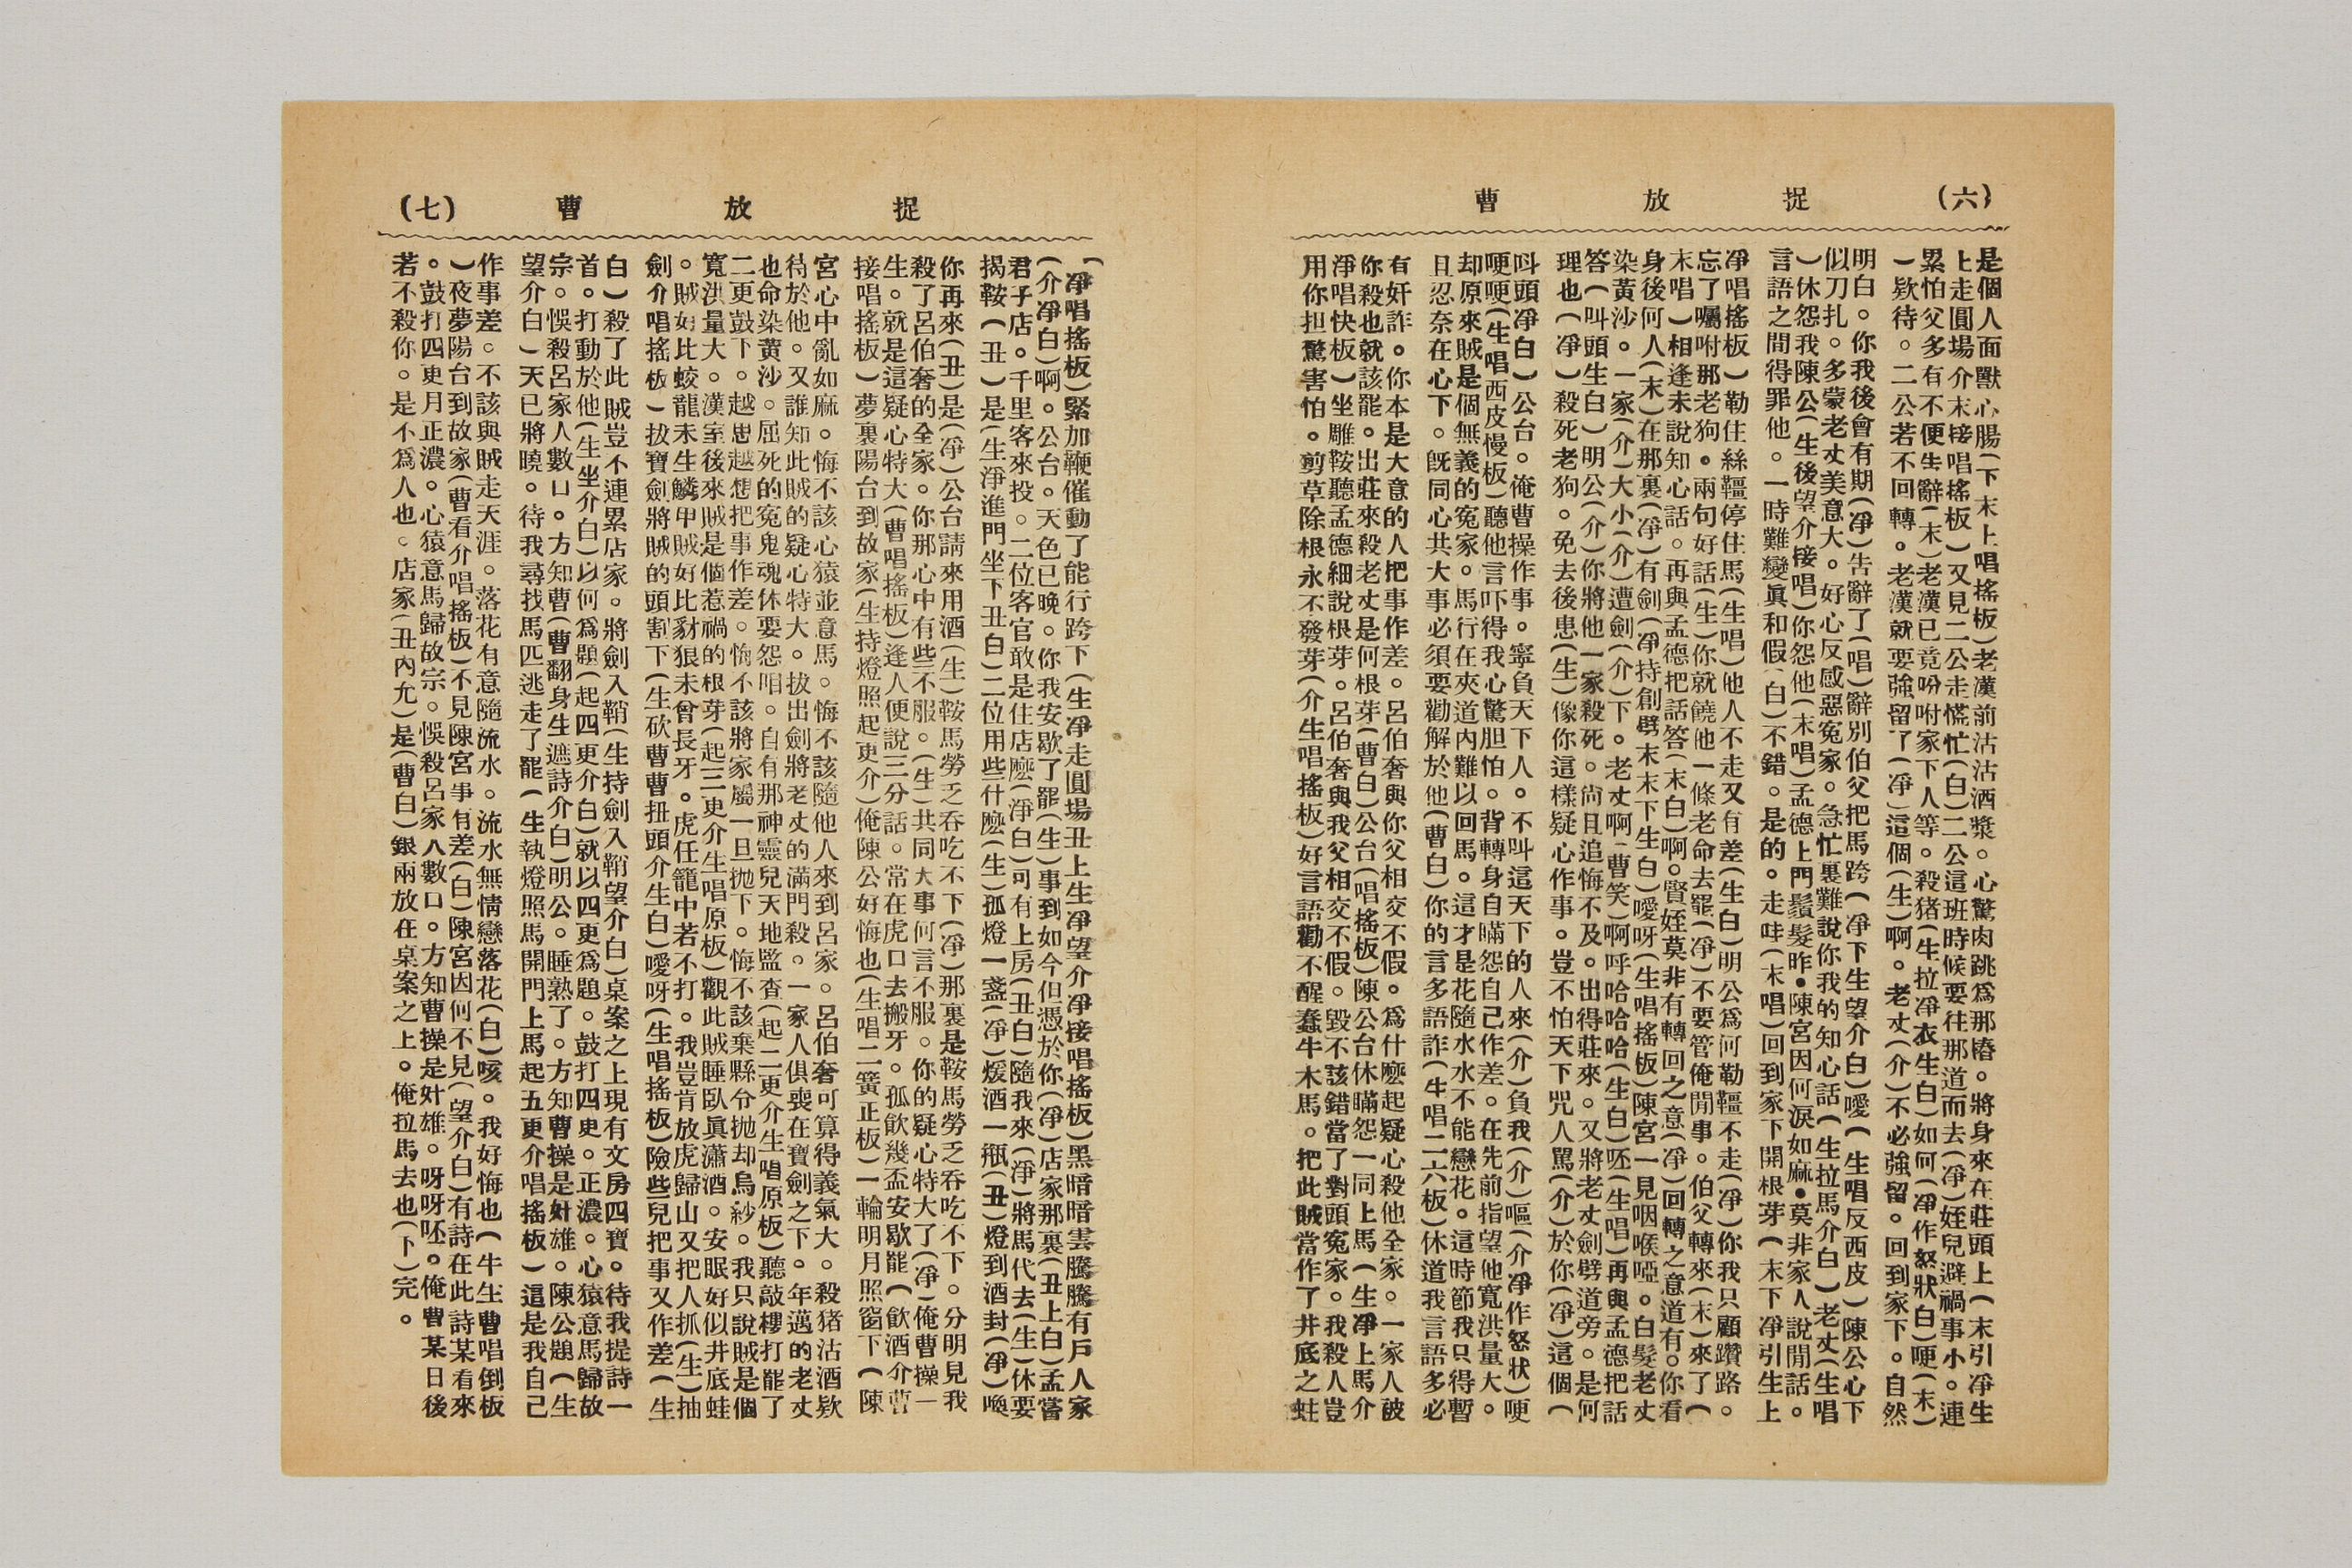 (六)　捉放曹
是個人面獸心腸(下末上唱搖板)老漢前沽沽酒漿。心驚肉跳爲那樁。將身來在莊頭上(末引凈生
上走圓場介末接唱搖板)又見二公走慌忙(白)二公這班時候要往那道而去(凈)姪兒避禍事小。連
累怕父多有不便生辭(末)老漢已竟吩咐家下人等。殺猪(生拉凈衣生白)如何(凈作怒狀白)哽(末
)欵待。二公若不回轉。老漢就要強留了(凈)這個(生)啊。老丈(介)不必強留。回到家下。自然
明白。你我後會有期(凈)告辭了(唱)辭別伯父把馬跨(凈下生望介白)噯(生唱反西皮)陳公心下
似刀扎。多蒙老丈美意大。好心反感惡寃家。急忙裏難說你我的知心話(生拉馬介白)老丈(生唱
)休怨我陳公(生後望介接唱)你怨他(末唱)孟德上門鬚髮咋。陳宮因何淚如麻。莫非家人說閒話。
言語之間得罪他。一時難變眞和假(白)不錯。是的。走哇(末唱)回到家下開根芽(末下凈引生上
凈唱搖板)勒住絲韁停住馬(生唱)他人不走又有差(生白)明公爲何勒韁不走(凈)你我只顧讚路。
忘了囑咐那老狗。兩句好話(生)你就饒他一條老命去罷(凈)不要管俺閒事。伯父轉來(末)來了(
末唱)相逢未說知心話。再與孟德把話答(末白)啊。賢姪莫非有轉回之意(凈)回轉之意道有。你看
身後何人(末)在那裏(凈)有劍(凈持創劈末末下生白)噯呀(生唱搖板)陳宮一見咽喉啞。白髮老丈
染黃沙。一家(介)大小(介)遭劍(介)下。老丈啊(曹笑)啊呼哈哈哈(生白)呸(生唱)再與孟德把話
答(叫頭生白)明公(介)你將他一家殺死。尚且追悔不及。出得莊來。又將老丈劍劈道旁。是何
理也(凈)殺死老狗。免去後患(生)像你這樣疑心作事。豈不怕天下咒人罵(介)於你(凈)這個(
叫頭凈白)公台。俺曹操作事。寧負天下人。不叫這天下的人來(介)負我(介)嘔(介凈作怒狀)哽
哽哽(生唱西皮慢板)聽他言吓得我心驚胆怕。背轉身自瞞怨自己作差。在先前指望他寬洪量大。
却原來賊是個無義的寃家。馬行在夾道內難以回馬。這才是花隨水水不能戀花。這時節我只得暫
且忍奈在心下。旣同心共大事必須要勸解於他(曹白)你的言多語詐(生唱二六板)休道我言語多必
有奸詐。你本是大意的人把事作差。呂伯奢與你父相交不假。爲什麼起疑心殺他全家。一家人被
你殺也就該罷。出莊來殺老丈是何根芽(曹白)公台(唱搖板)陳公台休瞞怨一同上馬(生凈上馬介
淨唱快板)坐雕鞍聽孟德細說根芽。呂伯奢與我父相交不假。毀不該錯當了對頭寃家。我殺人豈
用你担驚害怕。剪草除根永不發芽(介生唱搖板)好言語勸不醒蠢牛木馬。把此賊當作了井底之蛙
(七)　捉放曹
(凈唱搖板)緊加鞭催動了能行跨下(生凈走圓場丑上生凈望介凈接唱搖板)黑暗暗雲騰騰有戶人家
(介凈白)啊。公台。天色已晚。你我安歇了罷(生)事到如今但憑於你(凈)店家那裏(丑上白)孟嘗
君子店。千里客來投。二位客官敢是住店麼(淨白)可有上房(丑白)隨我來(淨)將馬代去(生)休要
揭鞍(丑)是(生淨進門坐下丑白)二位用些什麽(生)孤燈一盞(淨)煖酒一瓶(丑)燈到酒封(凈)喚
你再來(丑)是(淨)公台請來用酒(生)鞍馬勞乏吞吃不下(凈)那裏是鞍馬勞乏吞吃不下。分明見我
殺了呂伯奢的全家。你那心中有些不服。(生)共同大事何言不服。你的疑心特大了(凈)俺曹操一
生。就是這疑心特大(曹唱搖板)逢人便說三分話。常在虎口去搬牙。孤飲幾盃安歇罷(飲酒介曹
接唱搖板)夢裏陽台到故家(生持燈照起更介)俺陳公好悔也(生唱二簧正板)一輪明月照窗下(陳
宮心中亂如麻。悔不該心猿並意馬。悔不該隨他人來到呂家。呂伯奢可算得義氣大。殺猪沽酒欵
待於他。又誰知此賊的疑心特大。拔出劍將老丈的滿門殺。一家人俱喪在寶劍之下。年邁的老丈
也命染黃沙。屈死的寃鬼魂休要怨咱。自有那神靈兒天地監査(起二更介生唱原板)聽敲樓打罷了
二更鼓下。越思越想把事作差。悔不該將家屬一旦抛下。悔不該棄縣令抛却烏紗。我只說賊是個
寬洪量大。漢室後來賊是個惹禍的根芽(起三更介生唱原板)觀此賊睡臥眞瀟洒。安眠好似井底蛙
。賊好比蛟龍未生鱗甲賊好比豺狼未曾長牙。虎任籠中若不打。我豈肯放虎歸山又把人抓(生)抽
劍介唱搖板)拔寶劍將賊的頭割下(生砍曹曹扭頭介生白)噯呀(生唱搖板)險些兒把事又作差(生
白)殺了此賊豈不連累店家。將劍入鞘(生持劍入鞘望介白)桌案之上現有文房四寶。待我提詩一
首。打動於他(生坐介白)以何爲題(起四更介白)就以四更爲題。鼓打四更。正濃。心猿意馬歸故
宗。悞殺呂家人數口。方知曹(曹翻身生遮詩介白)明公。睡熟了。方知曹操是奸雄。陳公題(生
望介白)天已將曉。待我尋找馬匹逃走了罷(生執燈照馬開門上馬起五更介唱搖板)這是我自己
作事差。不該與賊走天涯。落花有意隨流水。流水無情戀落花(白)咳。我好悔也(牛生曹唱倒板
)夜夢陽台到故家(曹看介唱搖板)不見陳宮事有差(白)陳宮因何不見(望介白)有詩在此詩某看來
。鼓打四更月正濃。心猿意馬歸故宗。悞殺呂家人數口。方知曹操是奸雄。呀呀呸。俺曹某日後
若不殺你。是不爲人也。店家(丑內允)是(曹白)銀兩放在桌案之上。俺拉馬去也(下)完。